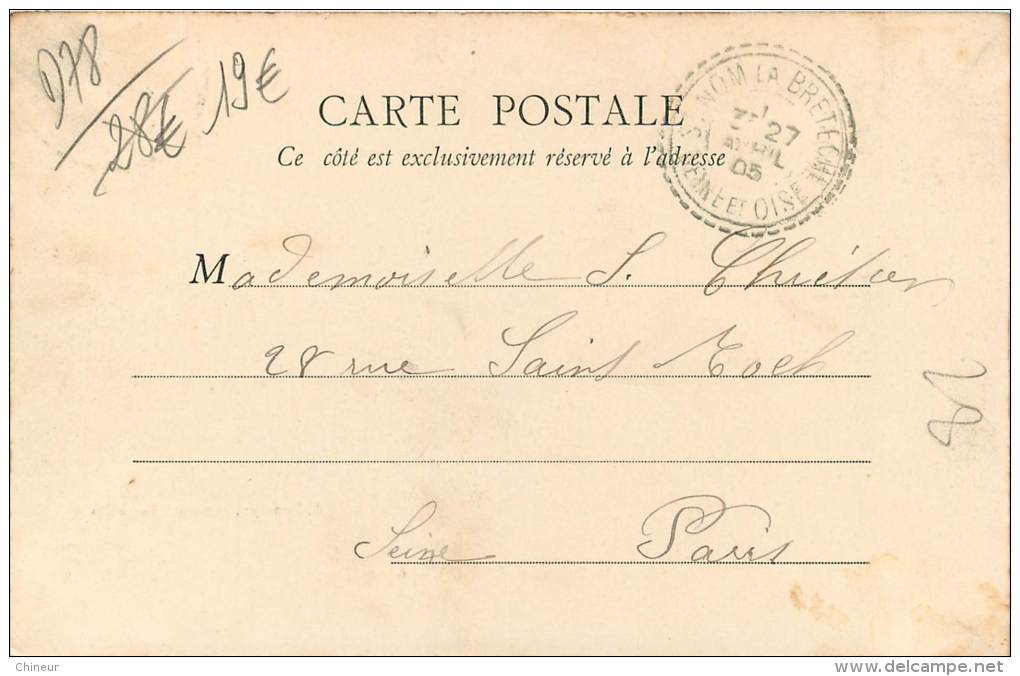 D78
28€ 19€
CARTE POSTALE
Ce côté est exclusivement réservé à l'adresse
ST NOM LA BRETECHE
27
AVRIL
05
SEINE ET OISE
Mademoiselle S. Chrétien
28 rue Saint Roch
Seine Paris
Chineur
www.delcampe.net